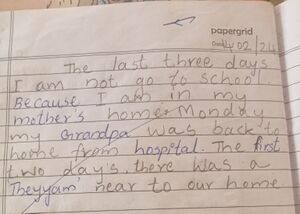 papergrid
02/24
The last three days
I am not go to school.
Because I am in my
mother's home. Monday
my Grandpa was back to
home from hospital. The first
two days. there was a
Theyyam near to our home.